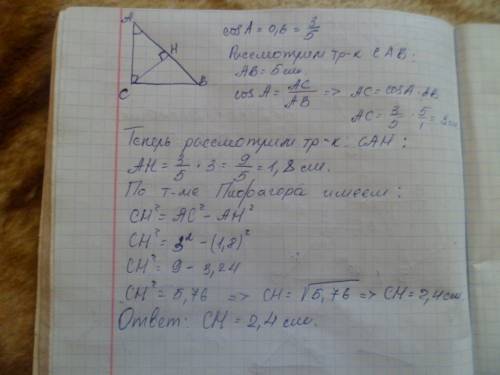 A
H
C
B
cos A = 0,6 = 3/5
Рассмотрим тр-к САВ:
AB = 5 см
cos A = AC/AB => AC = cos A · AB
AC = 3/5 · 5/1 = 3 см
Теперь рассмотрим тр-к: САН:
AH = 3/5 · 3 = 9/5 = 1,8 см.
По т-ме Пифагора имеем:
CH² = AC² - AH²
CH² = 3² - (1,8)²
CH² = 9 - 3,24
CH² = 5,76 => CH = √5,76 => CH = 2,4 см.
Ответ: CH = 2,4 см.